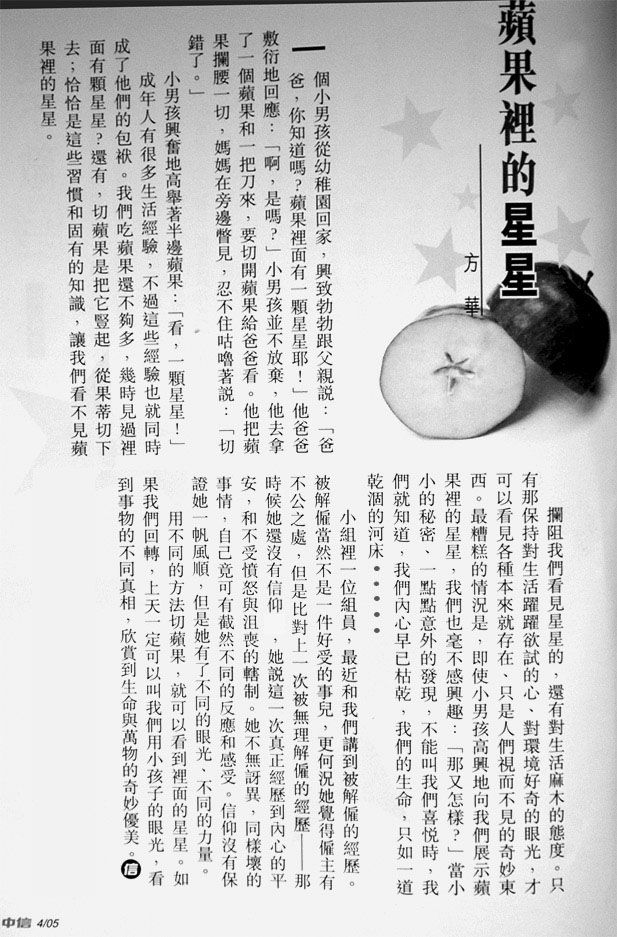 蘋果裡的星星
方華
一個小男孩從幼稚園回家，興致勃勃跟父親說：「爸
爸，你知道嗎？蘋果裡面有一顆星星耶！」他爸爸
敷衍地回應：「啊，是嗎？」小男孩並不放棄，他去拿
了一個蘋果和一把刀來，要切開蘋果給爸爸看。他把蘋
果攔腰一切，媽媽在旁邊瞥見，忍不住咕嚕著說：「切
錯了。」
小男孩興奮地高舉著半邊蘋果：「看，一顆星星！」
成年人有很多生活經驗，不過這些經驗也就同時
成了他們的包袱。我們吃蘋果還不夠多，幾時見過裡
面有顆星星？還有，切蘋果是把它豎起，從果蒂切下
去；恰恰是這些習慣和固有的知識，讓我們看不見蘋
果裡的星星。
攔阻我們看見星星的，還有對生活麻木的態度。只
有那保持對生活躍躍欲試的心、對環境好奇的眼光，才
可以看見各種本來就存在、只是人們視而不見的奇妙東
西。最糟糕的情況是，即使小男孩高興地向我們展示蘋
果裡的星星，我們也毫不感興趣：「那又怎樣？」當小
小的秘密、一點點意外的發現，不能叫我們喜悅時，我
們就知道，我們內心早已枯乾，我們的生命，只如一道
乾涸的河床•••••
小組裡一位組員，最近和我們講到被解僱的經歷。
被解僱當然不是一件好受的事兒，更何況她覺得僱主有
不公之處，但是比對上一次被無理解僱的經歷——那
時候她還沒有信仰，她說這一次真正經歷到內心的平
安，和不受憤怒與沮喪的轄制。她不無訝異，同樣壞的
事情，自己竟可有截然不同的反應和感受。信仰沒有保
證她一帆風順，但是她有了不同的眼光、不同的力量。
用不同的方法切蘋果，就可以看到裡面的星星。如
果我們回轉，上天一定可以叫我們用小孩子的眼光，看
到事物的不同真相，欣賞到生命與萬物的奇妙優美。信
中信 4/05